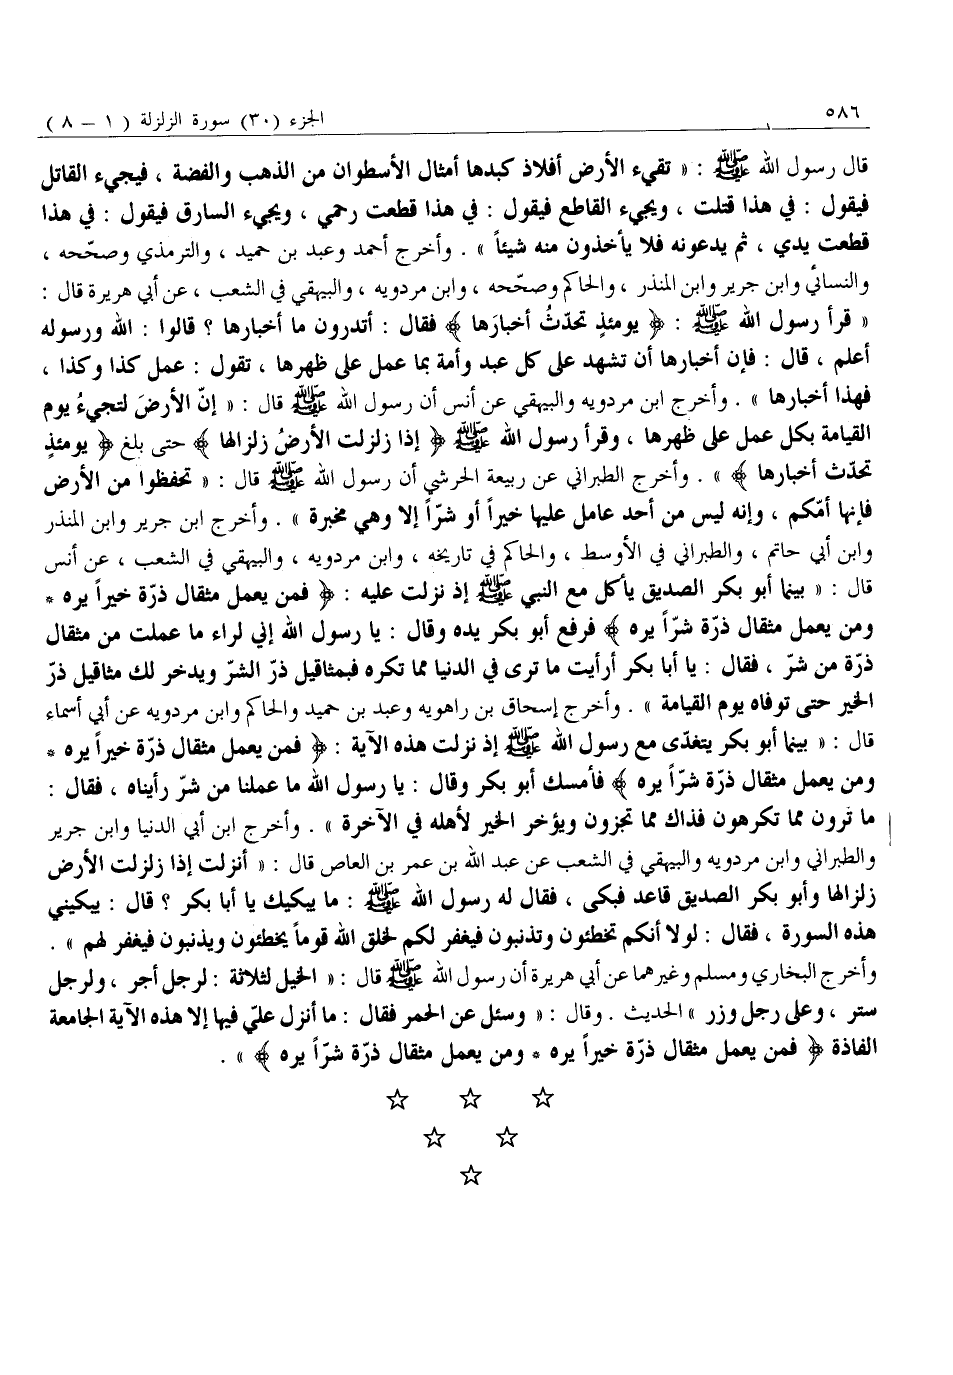 ٥٨٦
الجزء (٣٠) سورة الزلزلة ( ١ – ٨ )
قال رسول الله ﷺ : « تقيء الأرض أفلاذ كبدها أمثال الأسطوان من الذهب والفضة ، فيجيء القاتل
فيقول : في هذا قتلت ، ويجيء القاطع فيقول : في هذا قطعت رحمي ، ويجيء السارق فيقول : في هذا
قطعت يدي ، ثم يدعونه فلا يأخذون منه شيئاً » . وأخرج أحمد وعبد بن حميد ، والترمذي وصحّحه ،
والنسائي وابن جرير وابن المنذر ، والحاكم وصحّحه ، وابن مردويه ، والبيهقي في الشعب ، عن أبي هريرة قال :
« قرأ رسول الله ﷺ : ﴿ يومئذٍ تحدّثُ أخبارَها ﴾ فقال : أتدرون ما أخبارها ؟ قالوا : الله ورسوله
أعلم ، قال : فإن أخبارها أن تشهد على كل عبد وأمة بما عمل على ظهرها ، تقول : عمل كذا وكذا ،
فهذا أخبارها » . وأخرج ابن مردويه والبيهقي عن أنس أن رسول الله ﷺ قال : « إنّ الأرضَ لتجيءُ يوم
القيامة بكل عمل على ظهرها ، وقرأ رسول الله ﷺ ﴿ إذا زلزلت الأرضُ زلزالها ﴾ حتى بلغ ﴿ يومئذٍ
تحدّث أخبارها ﴾ » . وأخرج الطبراني عن ربيعة الحرشي أن رسول الله ﷺ قال : « تحفظوا من الأرض
فإنها أمّكم ، وإنه ليس من أحد عامل عليها خيراً أو شرّاً إلا وهي مخبرة » . وأخرج ابن جرير وابن المنذر
وابن أبي حاتم ، والطبراني في الأوسط ، والحاكم في تاريخه ، وابن مردويه ، والبيهقي في الشعب ، عن أنس
قال : « بينما أبو بكر الصديق يأكل مع النبي ﷺ إذ نزلت عليه : ﴿ فمن يعمل مثقال ذرّة خيراً يره *
ومن يعمل مثقال ذرّة شرّاً يره ﴾ فرفع أبو بكر يده وقال : يا رسول الله إني لراء ما عملت من مثقال
ذرّة من شرّ ، فقال : يا أبا بكر أرأيت ما ترى في الدنيا مما تكره فبمثاقيل ذرّ الشرّ ويدخر لك مثاقيل ذرّ
الخير حتى توفاه يوم القيامة » . وأخرج إسحاق بن راهويه وعبد بن حميد والحاكم وابن مردويه عن أبي أسماء
قال : « بينما أبو بكر يتغدّى مع رسول الله ﷺ إذ نزلت هذه الآية : ﴿ فمن يعمل مثقال ذرّة خيراً يره *
ومن يعمل مثقال ذرّة شرّاً يره ﴾ فأمسك أبو بكر وقال : يا رسول الله ما عملنا من شرّ رأيناه ، فقال :
ما ترون مما تكرهون فذاك مما تجزون ويؤخر الخير لأهله في الآخرة » . وأخرج ابن أبي الدنيا وابن جرير
والطبراني وابن مردويه والبيهقي في الشعب عن عبد الله بن عمر بن العاص قال : « أنزلت إذا زلزلت الأرض
زلزالها وأبو بكر الصديق قاعد فبكى ، فقال له رسول الله ﷺ : ما يبكيك يا أبا بكر ؟ قال : يبكيني
هذه السورة ، فقال : لولا أنكم تخطئون وتذنبون فيغفر لكم لخلق الله قوماً يخطئون ويذنبون فيغفر لهم » .
وأخرج البخاري ومسلم وغيرهما عن أبي هريرة أن رسول الله ﷺ قال : « الخيل لثلاثة : لرجل أجر ، ولرجل
ستر ، وعلى رجل وزر » الحديث . وقال : « وسئل عن الحمر فقال : ما أنزل عليّ فيها إلا هذه الآية الجامعة
الفاذة ﴿ فمن يعمل مثقال ذرّة خيراً يره * ومن يعمل مثقال ذرّة شرّاً يره ﴾ » .